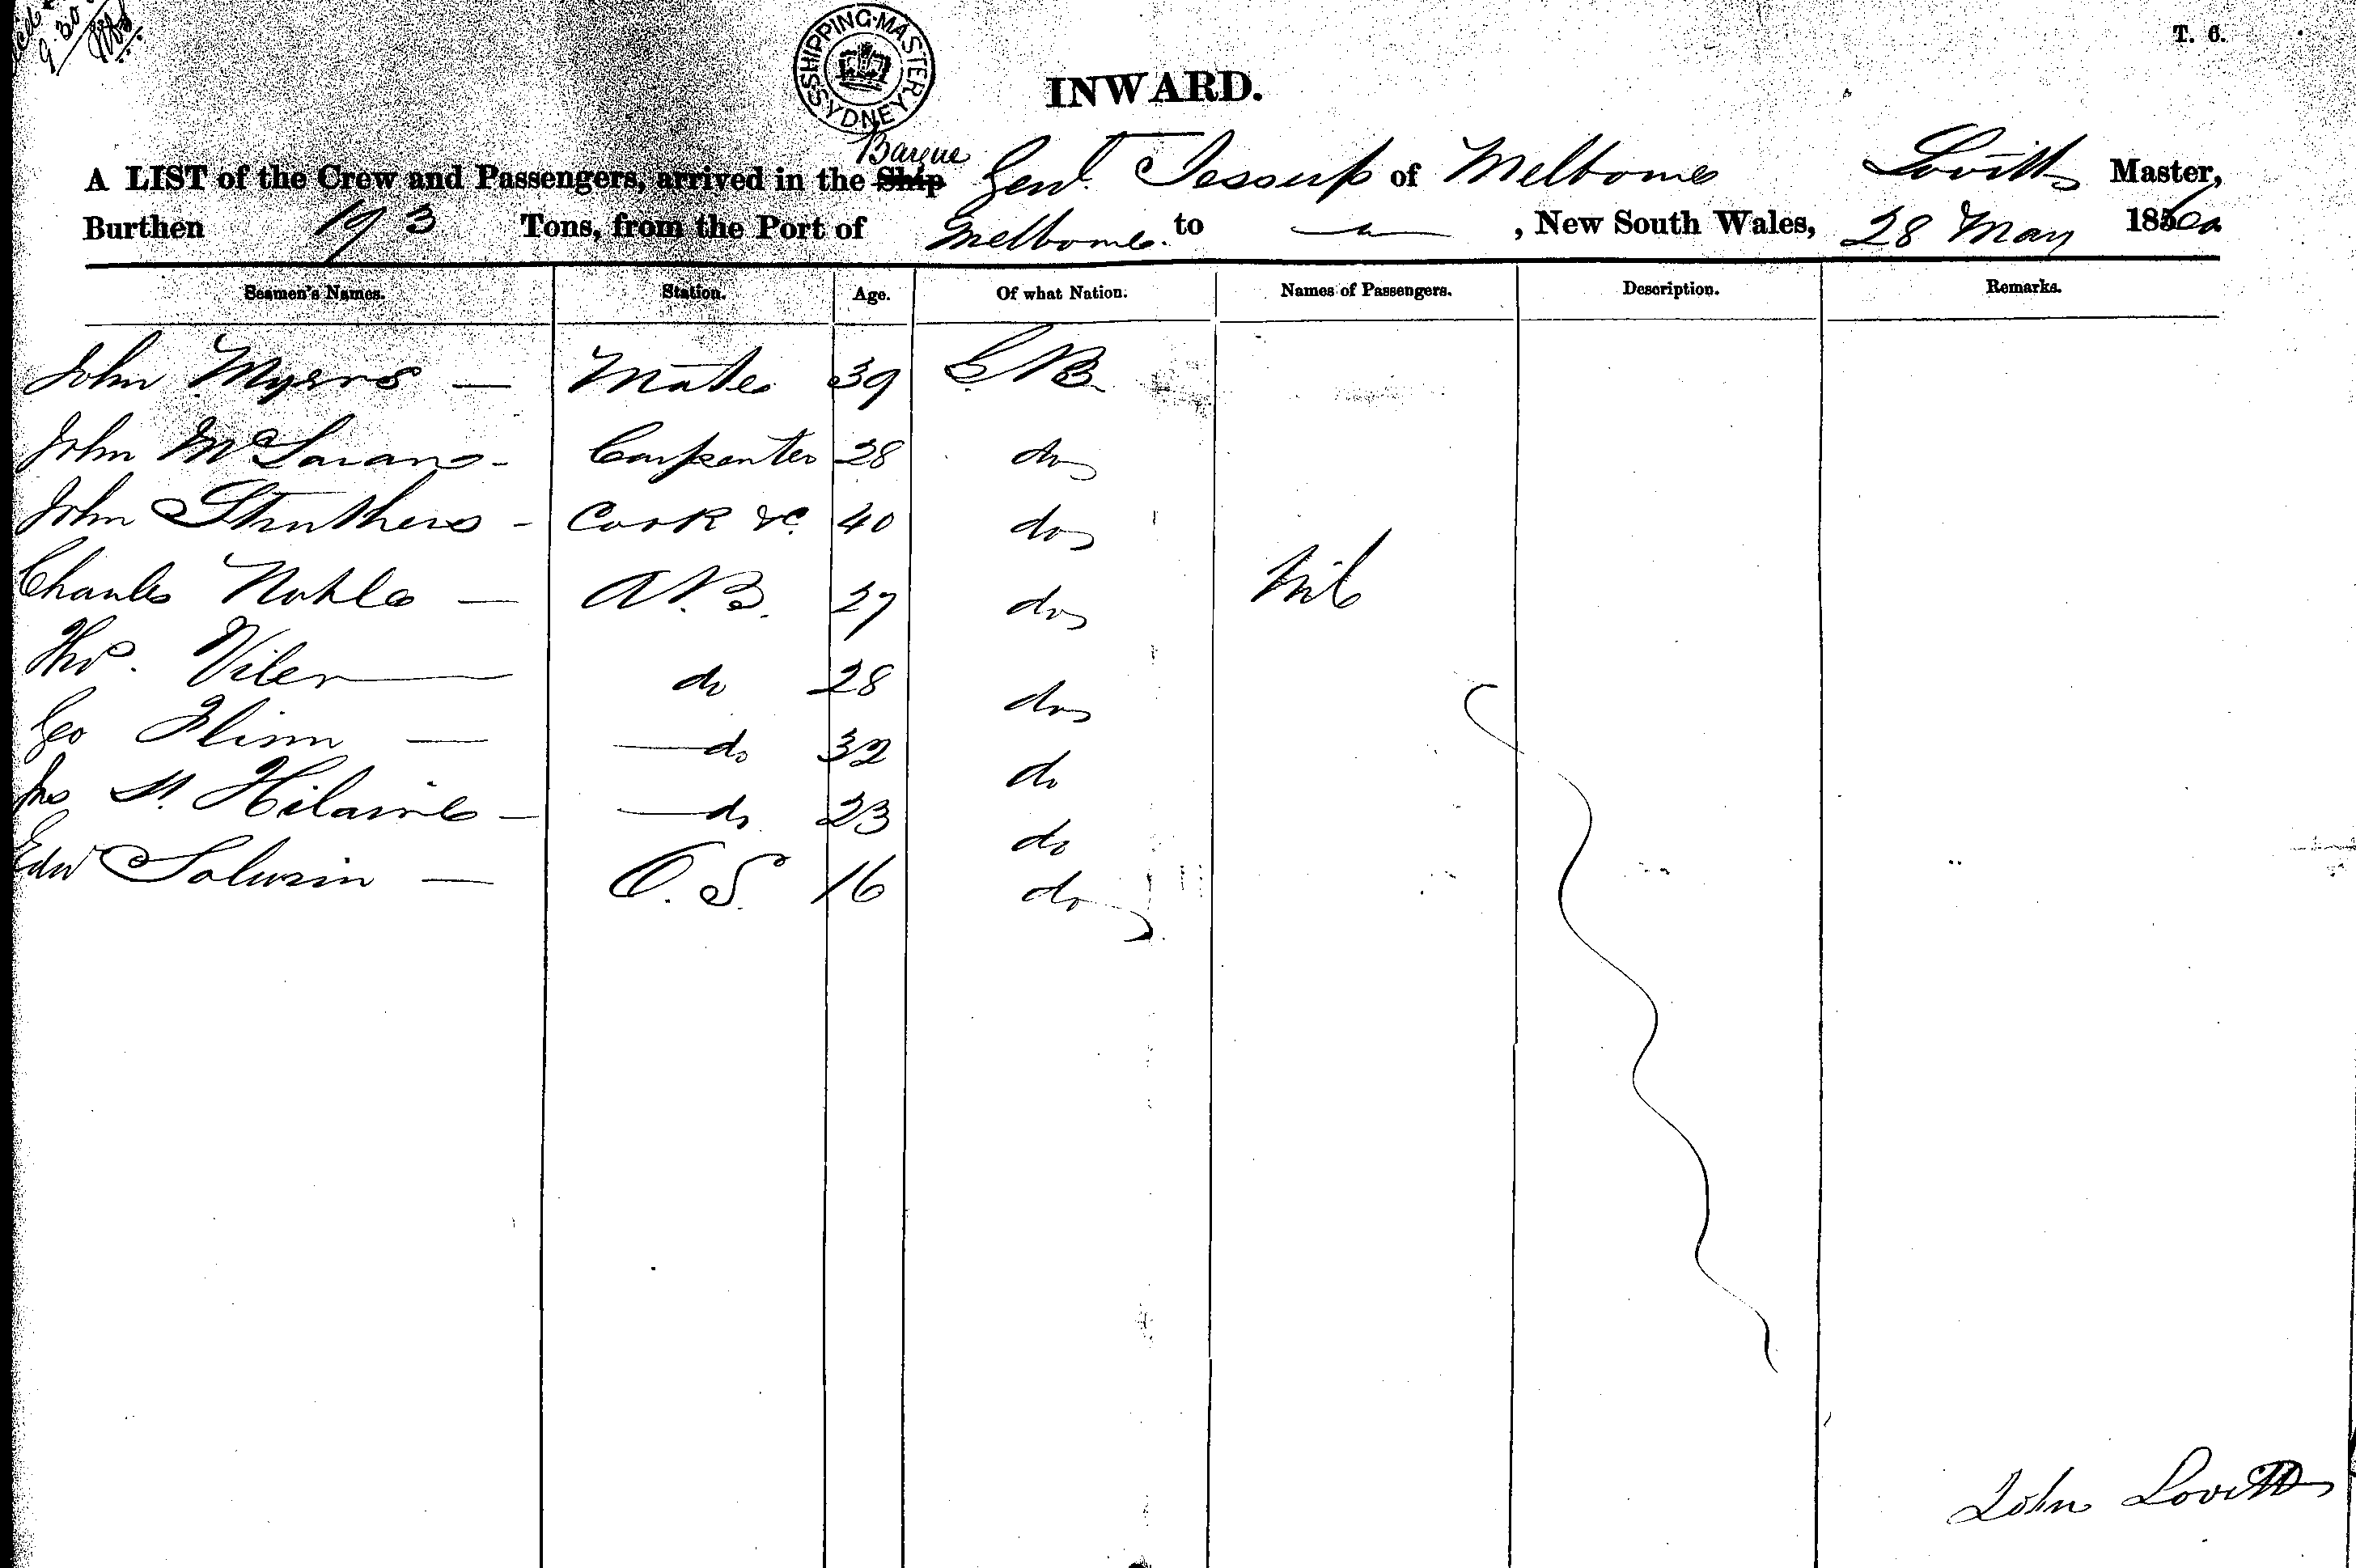 9.30
SHIPPING MASTER SYDNEY
T. 6.
INWARD.
Barque
A LIST of the Crew and Passengers, arrived in the Ship Genl. Jessup of Melbourne Lovitt Master,
Burthen 193 Tons, from the Port of Melbourne to , New South Wales, 28 May 1860
Seamen's Names. Station. Age. Of what Nation. Names of Passengers. Description. Remarks.
John Myers — Mate 39 G.B.
John McLaran - Carpenter 28 do
John Struthers - Cook &c. 40 do
Charles Noble — A.B. 27 do Nil
Thos. Viler — do 28 do
Geo Flinn — — do 32 do
Jno St. Hilaire — — do 23 do
Edw — O.S. 16 do
John Lovitt